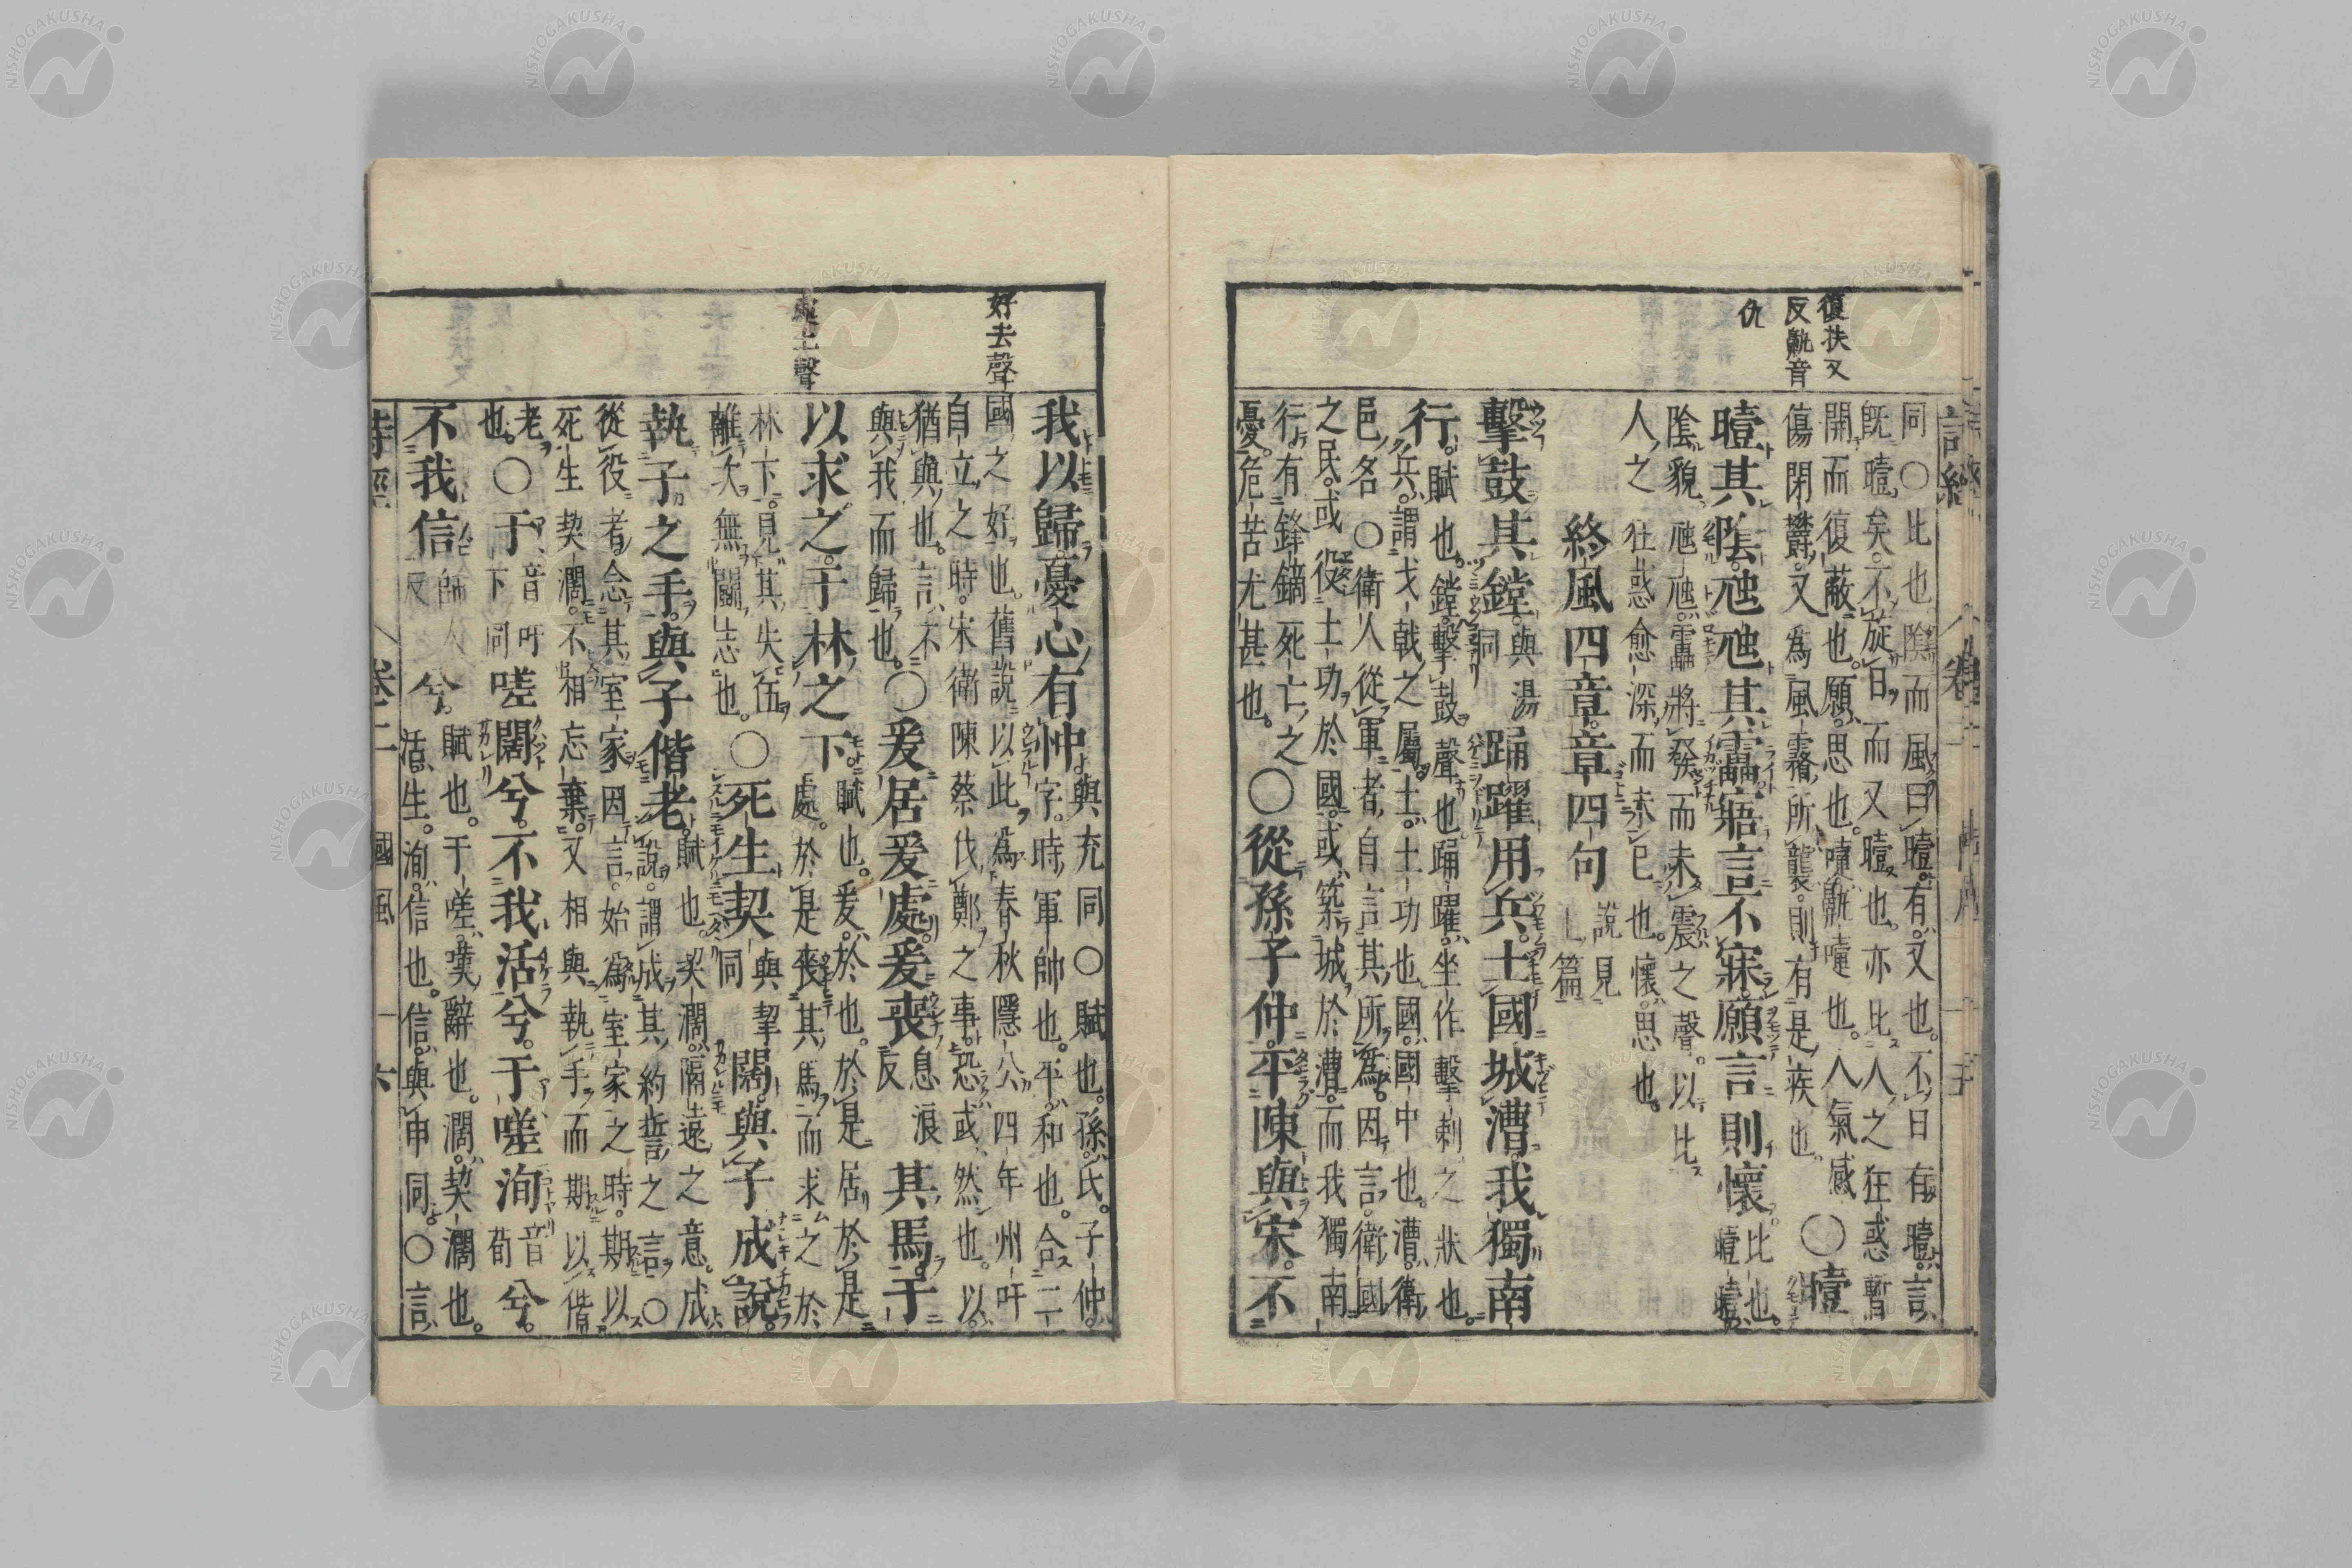 復扶又
反鼽音
仇
同○比也陰而風曰曀有又也不日有曀言
既曀矣不旋日而又曀也亦比人之狂惑暫
開而復蔽也願思也嚏鼽嚏也人氣感
傷閉鬱又為風霧所襲則有是疾也
○曀
曀其陰虺虺其靁寤言不寐願言則懷
比也
曀曀
陰貌虺虺靁將發而未震之聲以比
人之狂惑愈深而未已也懷思也
終風四章章四句
說見
上篇
擊鼓其鏜
與湯
同
踊躍用兵土國城漕我獨南
行
賦也鏜擊鼓聲也踊躍坐作擊刺之狀也
兵謂戈戟之屬土土功也國國中也漕衛
邑名○衛人從軍者自言其所為因言衛國
之民或役土功於國或築城於漕而我獨南
行有鋒鏑死亡之
憂危苦尤甚也
○從孫子仲平陳與宋不
好去聲
與上聲
我以歸憂心有忡
與充同○賦也孫氏子仲
字時軍帥也平和也合二
國之好也舊說以此為春秋隱公四年州吁
自立之時宋衛陳蔡伐鄭之事恐或然也以
猶與也言不
與我而歸也
○爰居爰處爰喪
息浪
反
其馬于
以求之于林之下
賦也爰於也於是居於是
處於是喪其馬而求之於
林下見其失伍
離次無鬪志也
○死生契
與挈
同
闊與子成說
執子之手與子偕老
賦也契闊隔遠之意成
說謂成其約誓之言○
從役者念其室家因言始為室家之時期以
死生契闊不相忘棄又相與執手而期以偕
老
也
○于
音吁
下同
嗟闊兮不我活兮于嗟洵
音
荀
兮
不我信
師人
反
兮
賦也于嗟歎辭也闊契闊也
活生洵信也信與申同○言
詩經
卷二
國風
六